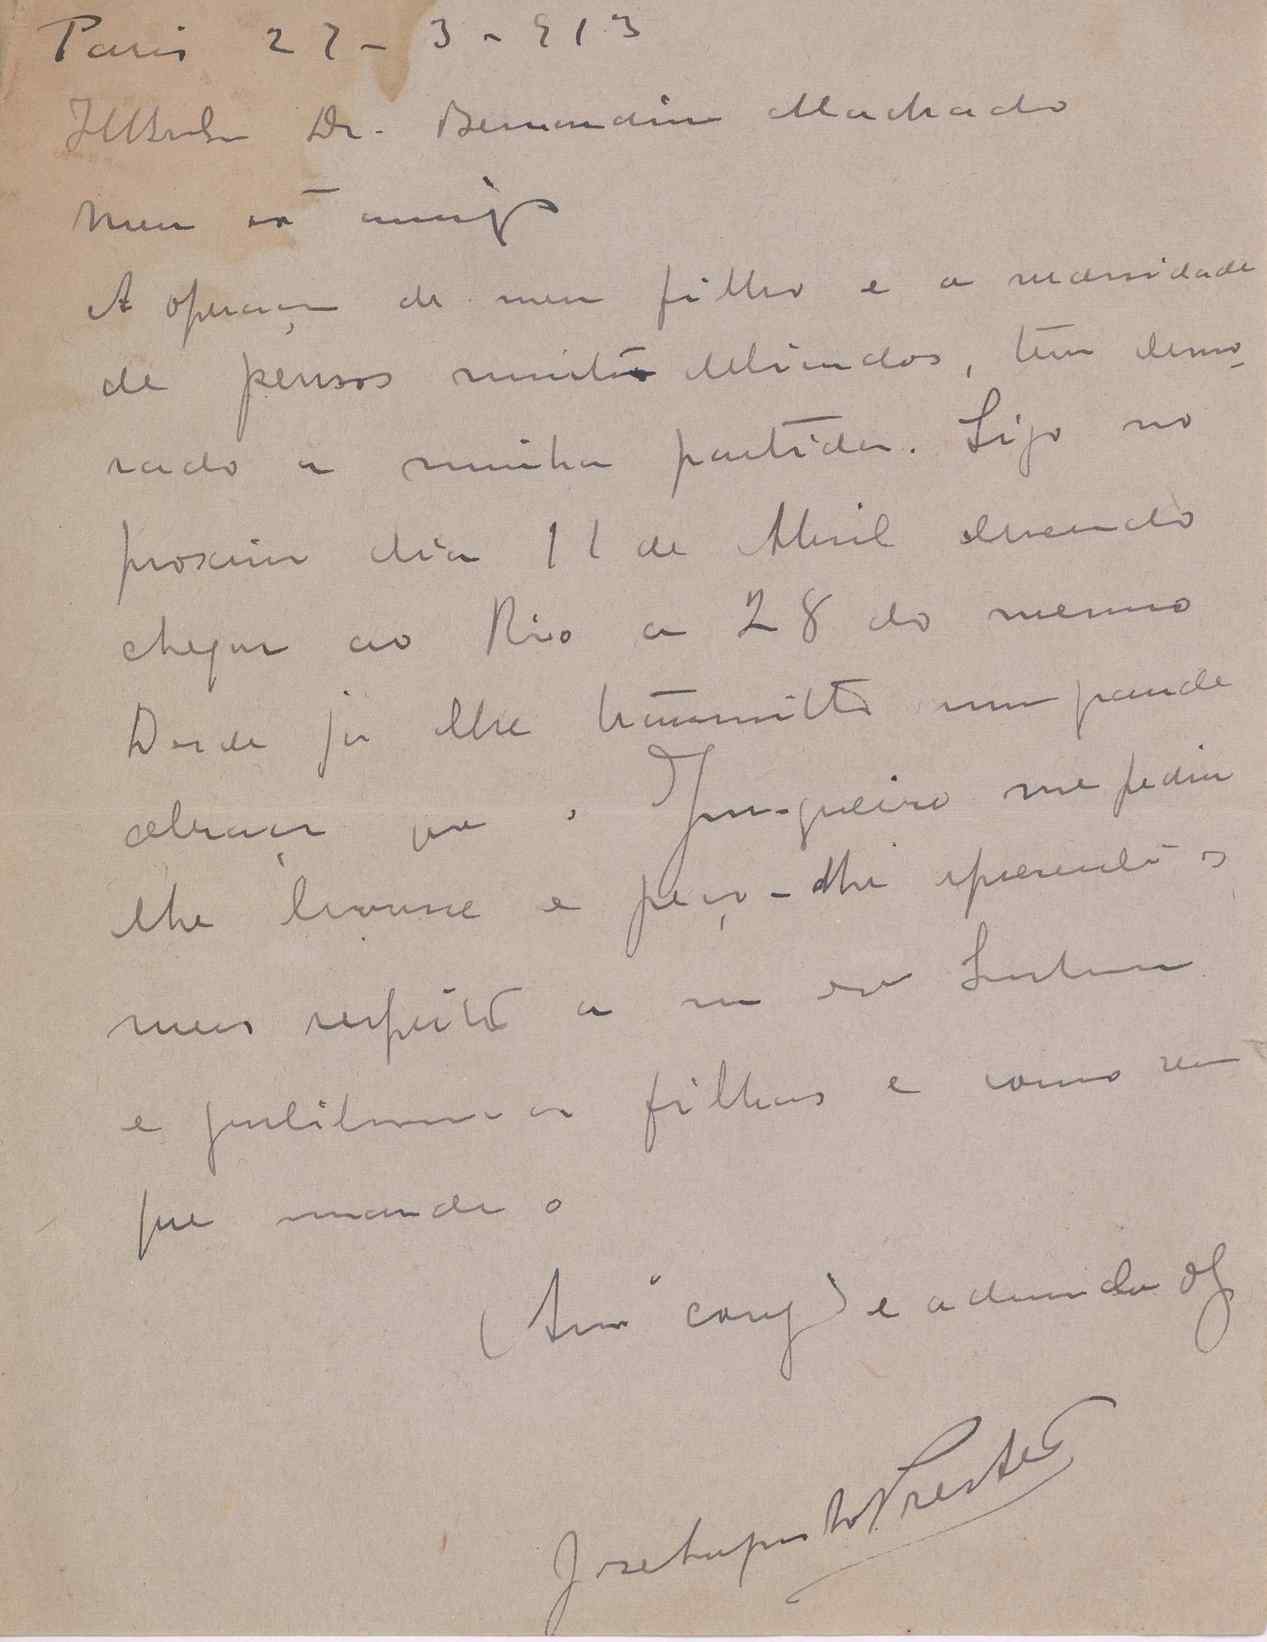 Paris 27-3-913
Dr. Bernardino Machado
Meu amigo
A operação de meu filho e a necessidade
de pensos muito delicados, tem demo-
rado a minha partida. Sigo no
proximo dia 11 de Abril devendo
chegar ao Rio a 28 do mesmo
Desde ja lhe transmitto um grande
abraço que o Junqueiro me pediu
lhe levasse e peço-lhe apresente os
meus respeitos a sua Senhora
e filhas e como sem
pre mande o
(Amo e admirador
José Augusto Prestes